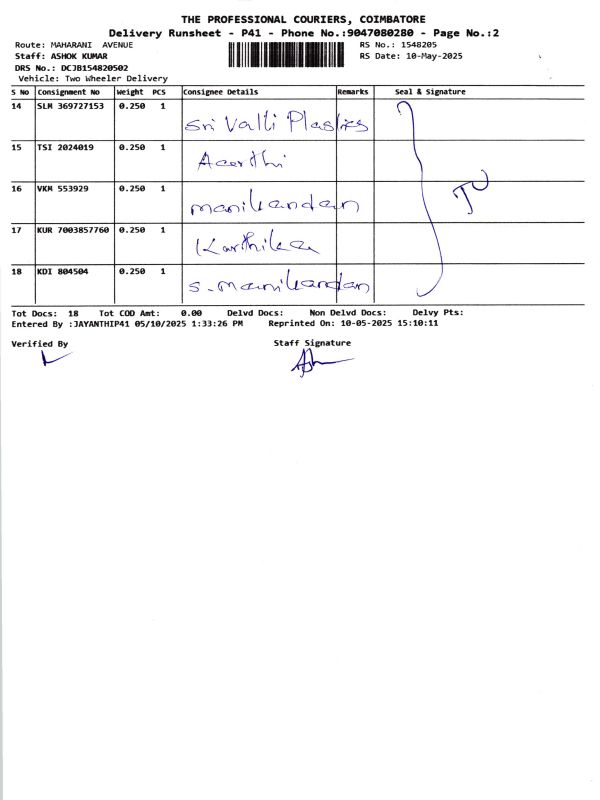 THE PROFESSIONAL COURIERS, COIMBATORE
Delivery Runsheet - P41 - Phone No.:9047080280 - Page No.:2
Route: MAHARANI AVENUE RS No.: 1548205
Staff: ASHOK KUMAR RS Date: 10-May-2025
DRS No.: DCJB154820502
Vehicle: Two Wheeler Delivery
S No Consignment No Weight PCS Consignee Details Remarks Seal & Signature
14 SLM 369727153 0.250 1 Sri Valli Plastics
15 TSI 2024019 0.250 1 Aarthi
16 VKM 553929 0.250 1 manikandan
17 KUR 7003857760 0.250 1 Karthika
18 KDI 804504 0.250 1 S. manikandan
Tot Docs: 18 Tot COD Amt: 0.00 Delvd Docs: Non Delvd Docs: Delvy Pts:
Entered By :JAYANTHIP41 05/10/2025 1:33:26 PM Reprinted On: 10-05-2025 15:10:11
Verified By Staff Signature